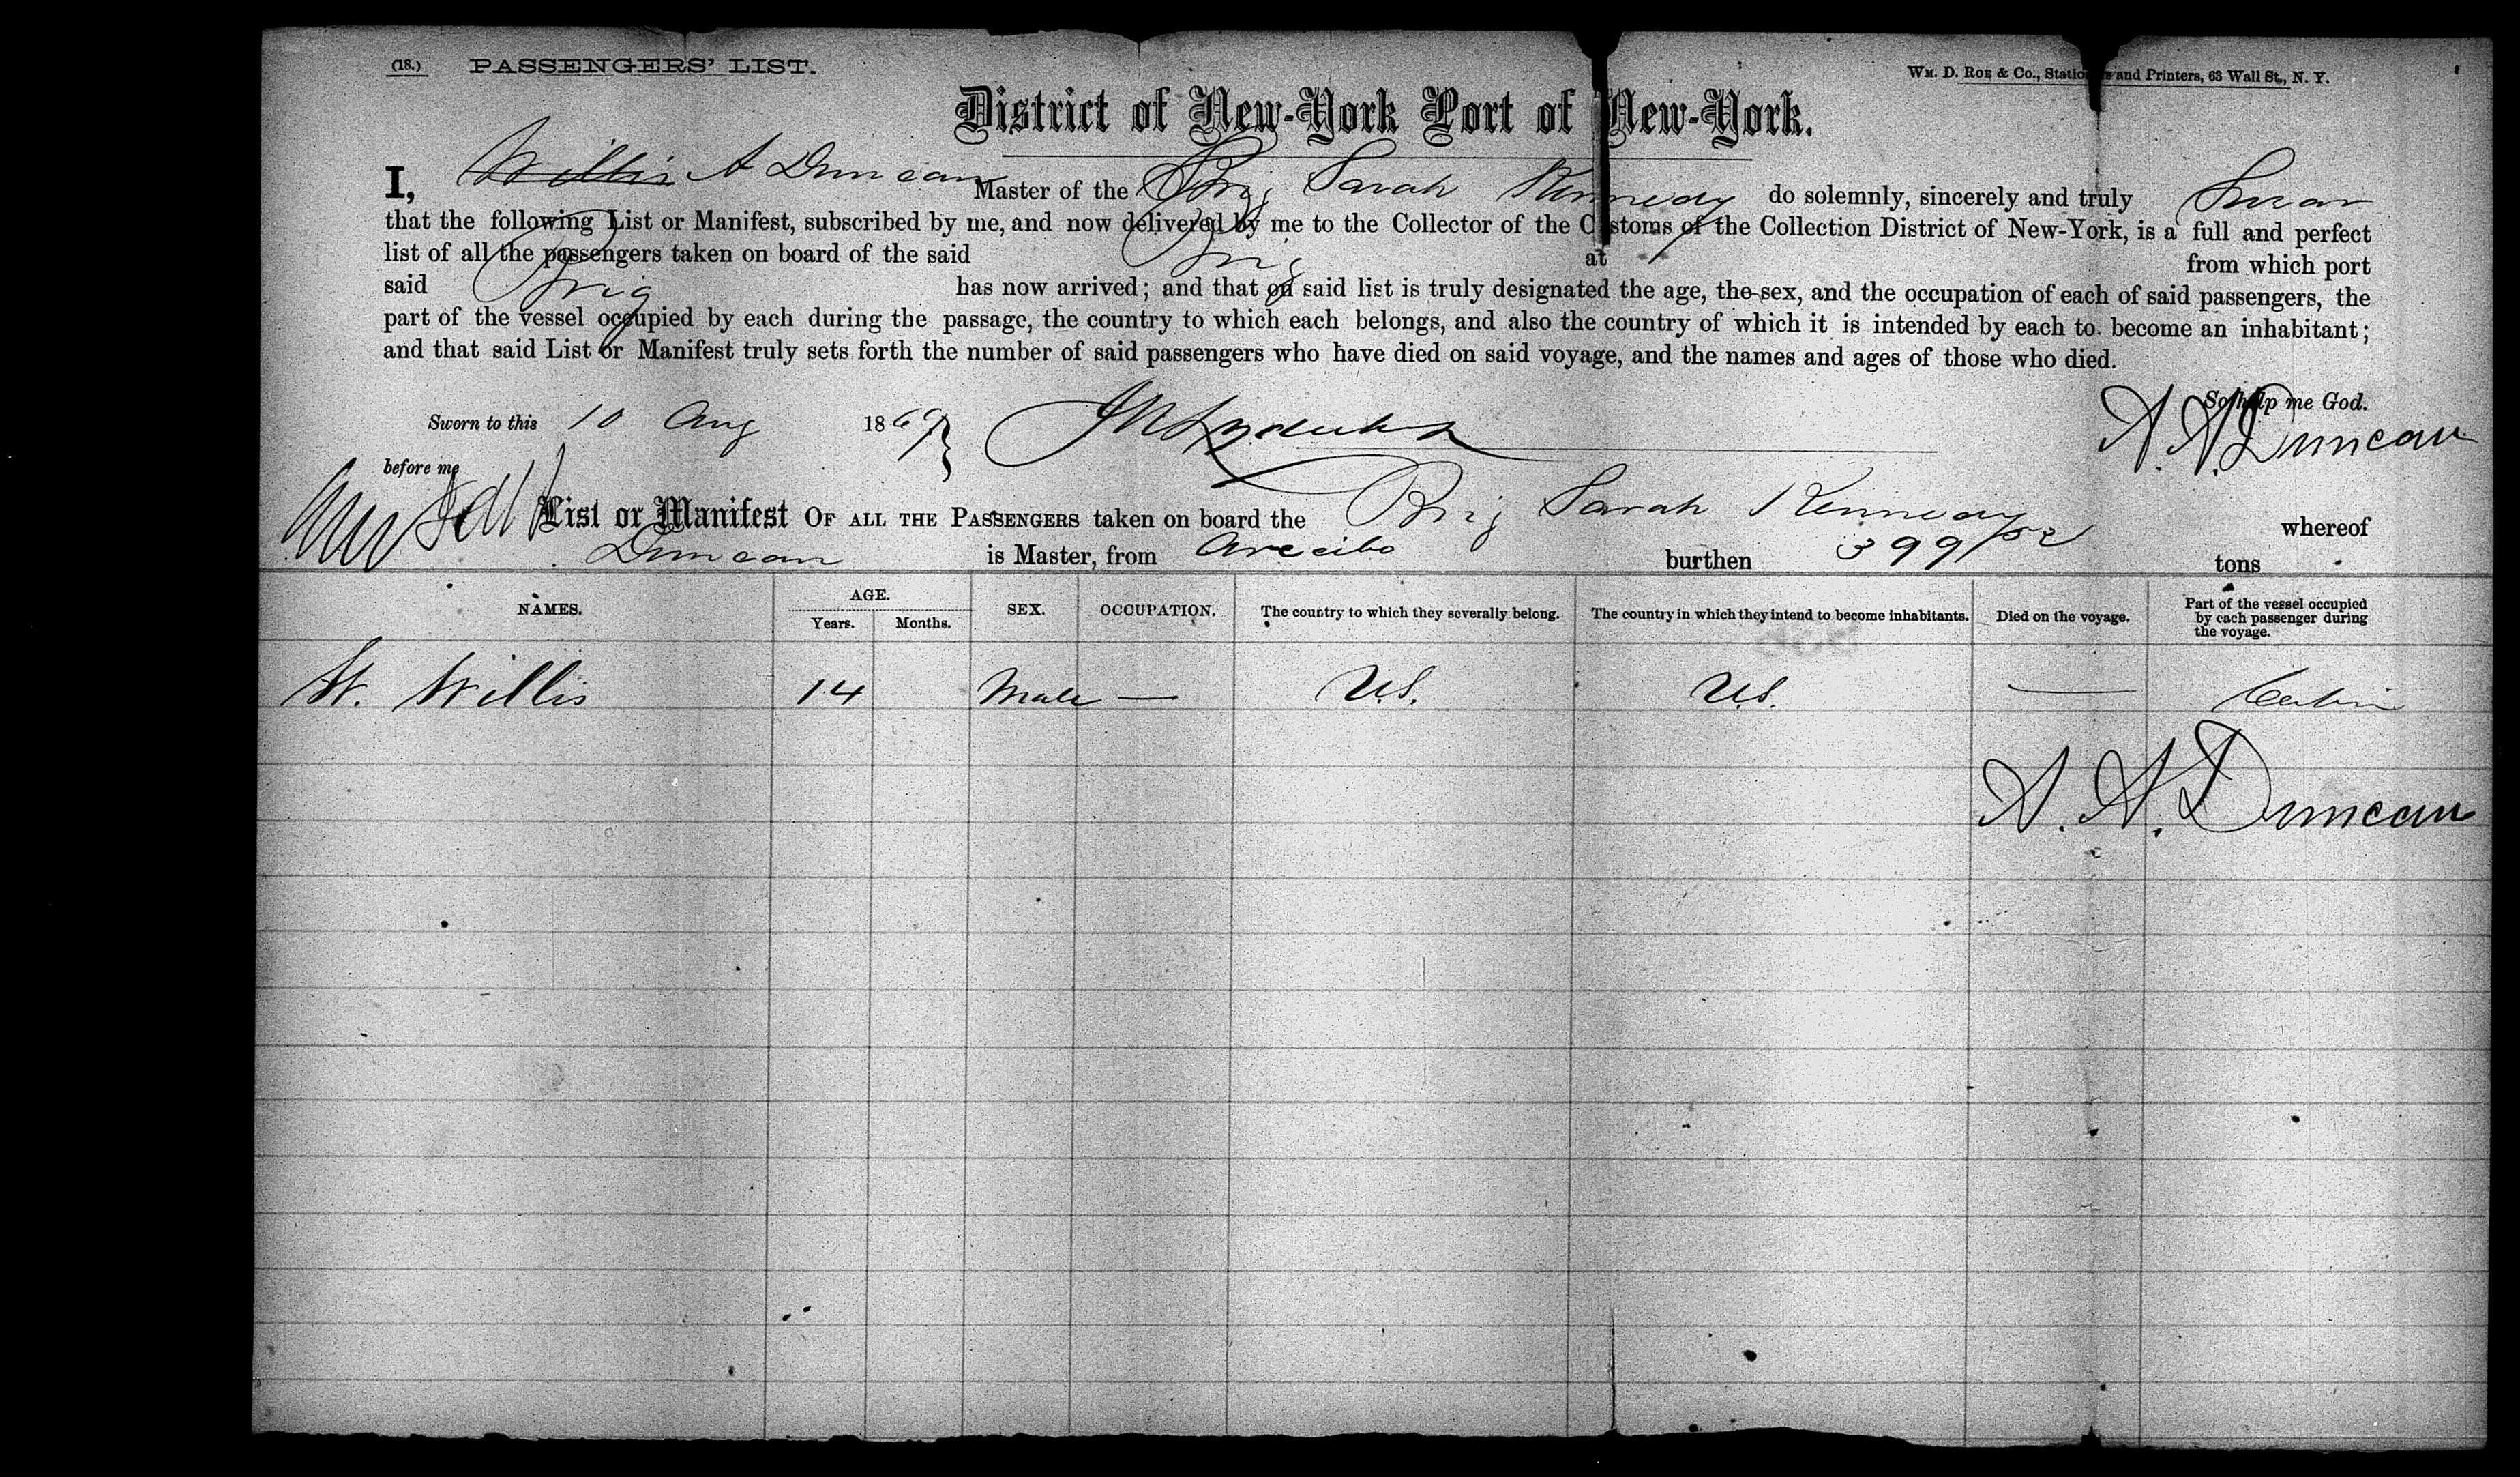 (18.) PASSENGERS' LIST.
WM. D. ROE & CO., Stationers and Printers, 63 Wall St., N. Y.
District of New-York Port of New-York.
I, Willis A Duncan Master of the Brig Sarah Kennedy do solemnly, sincerely and truly Swear
that the following List or Manifest, subscribed by me, and now delivered by me to the Collector of the Customs of the Collection District of New-York, is a full and perfect
list of all the passengers taken on board of the said Brig at from which port
said Brig has now arrived; and that on said list is truly designated the age, the sex, and the occupation of each of said passengers, the
part of the vessel occupied by each during the passage, the country to which each belongs, and also the country of which it is intended by each to become an inhabitant;
and that said List or Manifest truly sets forth the number of said passengers who have died on said voyage, and the names and ages of those who died.
So help me God.
Sworn to this 10 Aug 1869 A. A. Duncan
before me
List or Manifest OF ALL THE PASSENGERS taken on board the Brig Sarah Kennedy whereof
Duncan is Master, from Arecibo burthen 399/52 tons
NAMES. AGE. Years. Months. SEX. OCCUPATION. The country to which they severally belong. The country in which they intend to become inhabitants. Died on the voyage. Part of the vessel occupied by each passenger during the voyage.
W. Willis 14 Male — U.S. U.S. — Cabin
A. A. Duncan